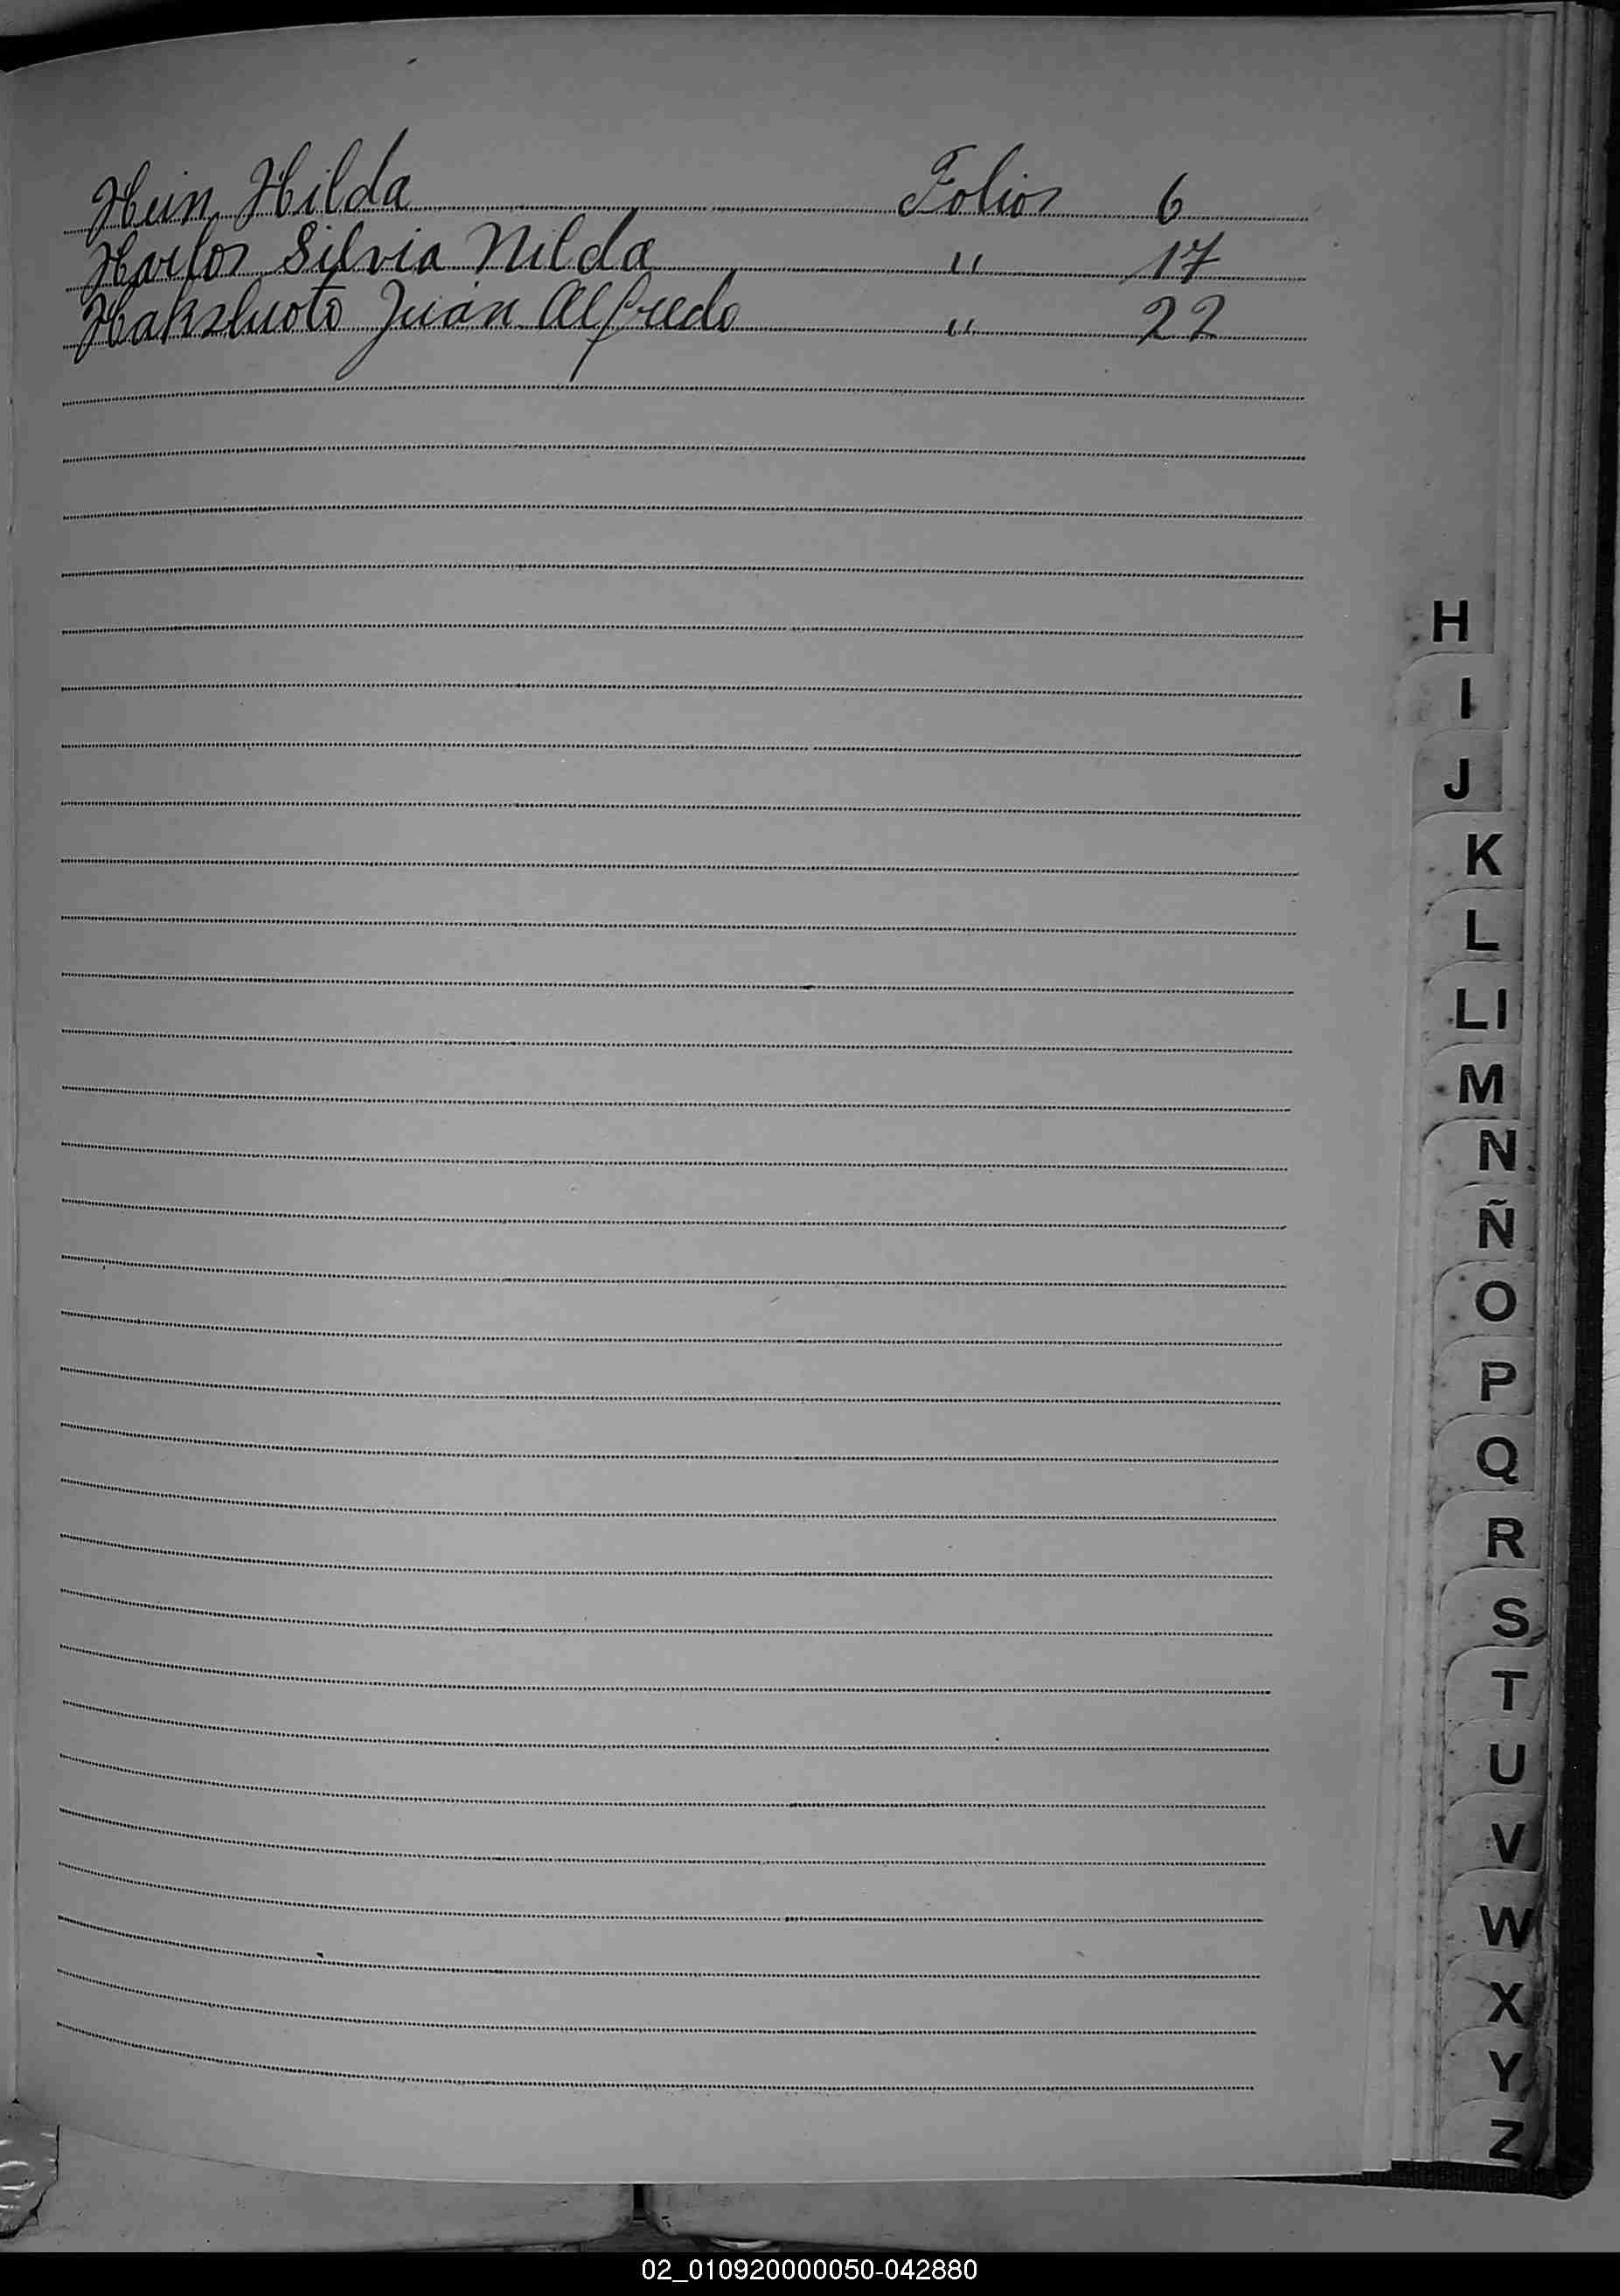 Hein Hilda Folios 6
Harlos Silvia Nilda " 17
Juan Alfredo " 22
H
I
J
K
L
Ll
M
N
Ñ
O
P
Q
R
S
T
U
V
W
X
Y
Z
02_010920000050-042880